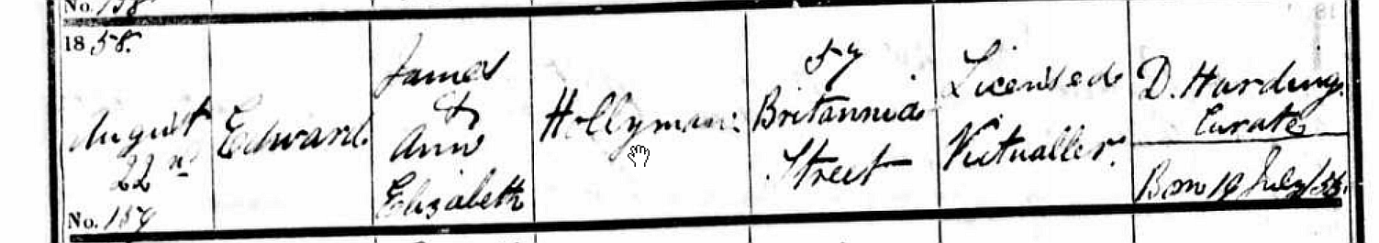 No. 158
1858.
August
22nd
No. 159
Edward
James
&
Ann
Elizabeth
Hollyman
57
Britannia
Street
Licensed
Victualler.
D. Harding.
Curate
Born 19 July